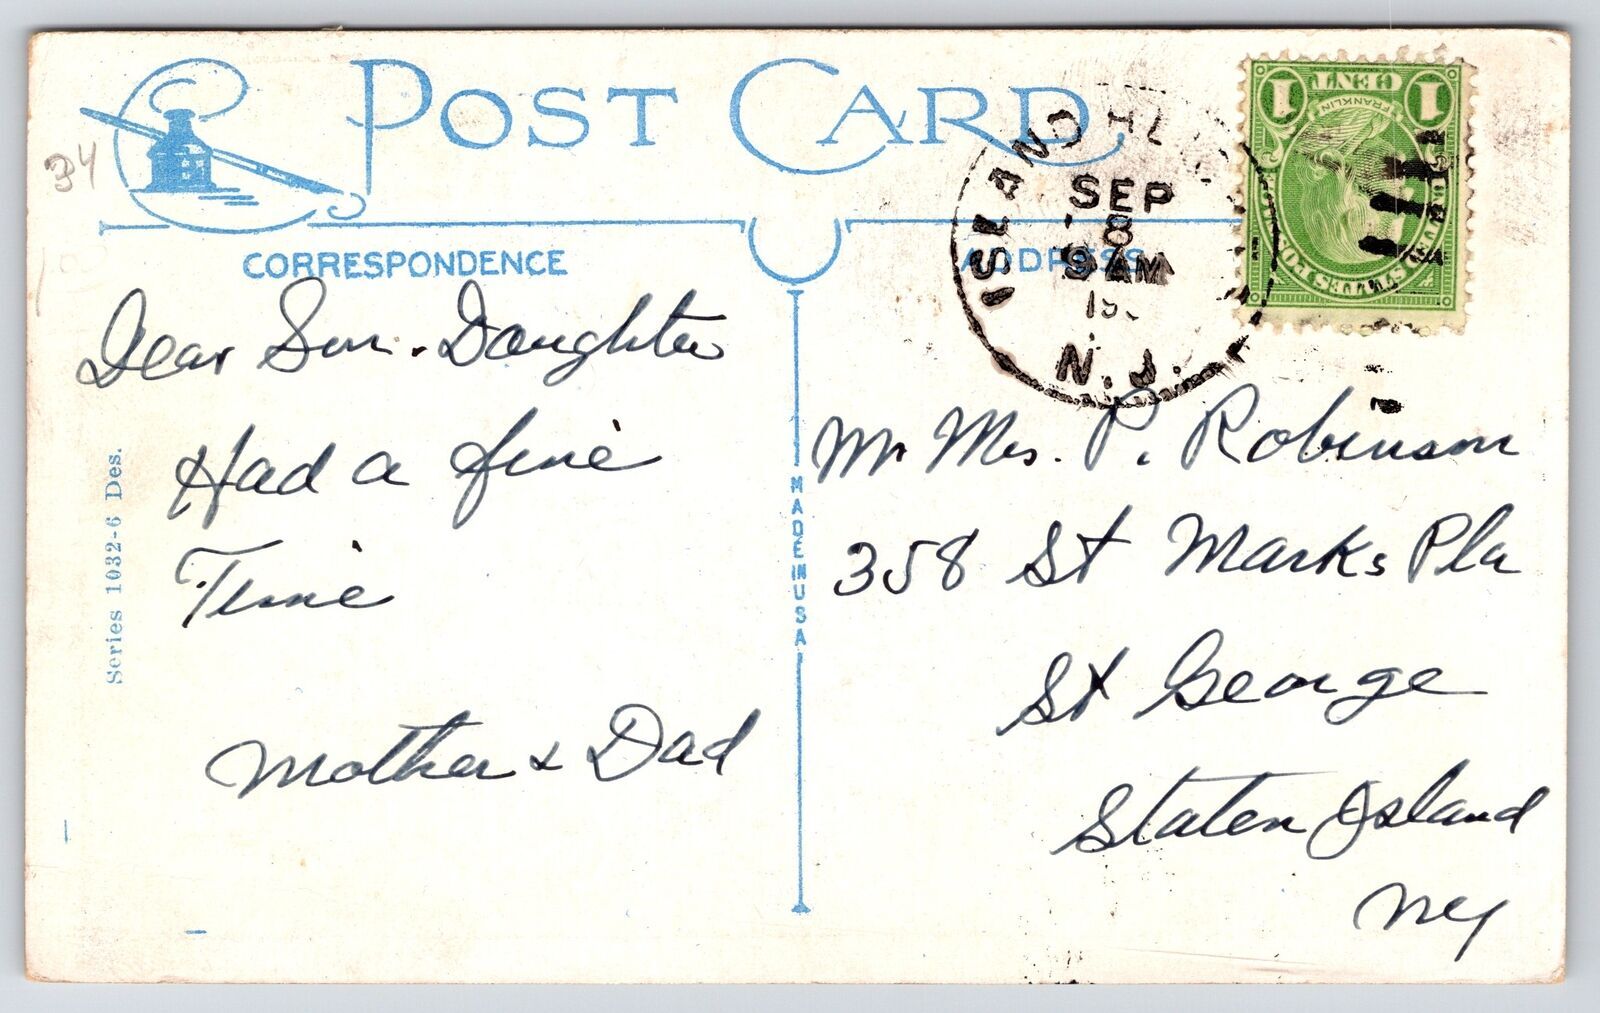 POST CARD
34
CORRESPONDENCE
ADDRESS
ISLAND
SEP
8
9 AM
N.J.
1 CENT 1
FRANKLIN
Dear Son. Daughter
Had a fine
Time
Mother & Dad
Series 1032-6 Des.
MADE IN USA
Mr Mrs. P. Robinson
358 St Marks Pla
St George
Staten Island
NY